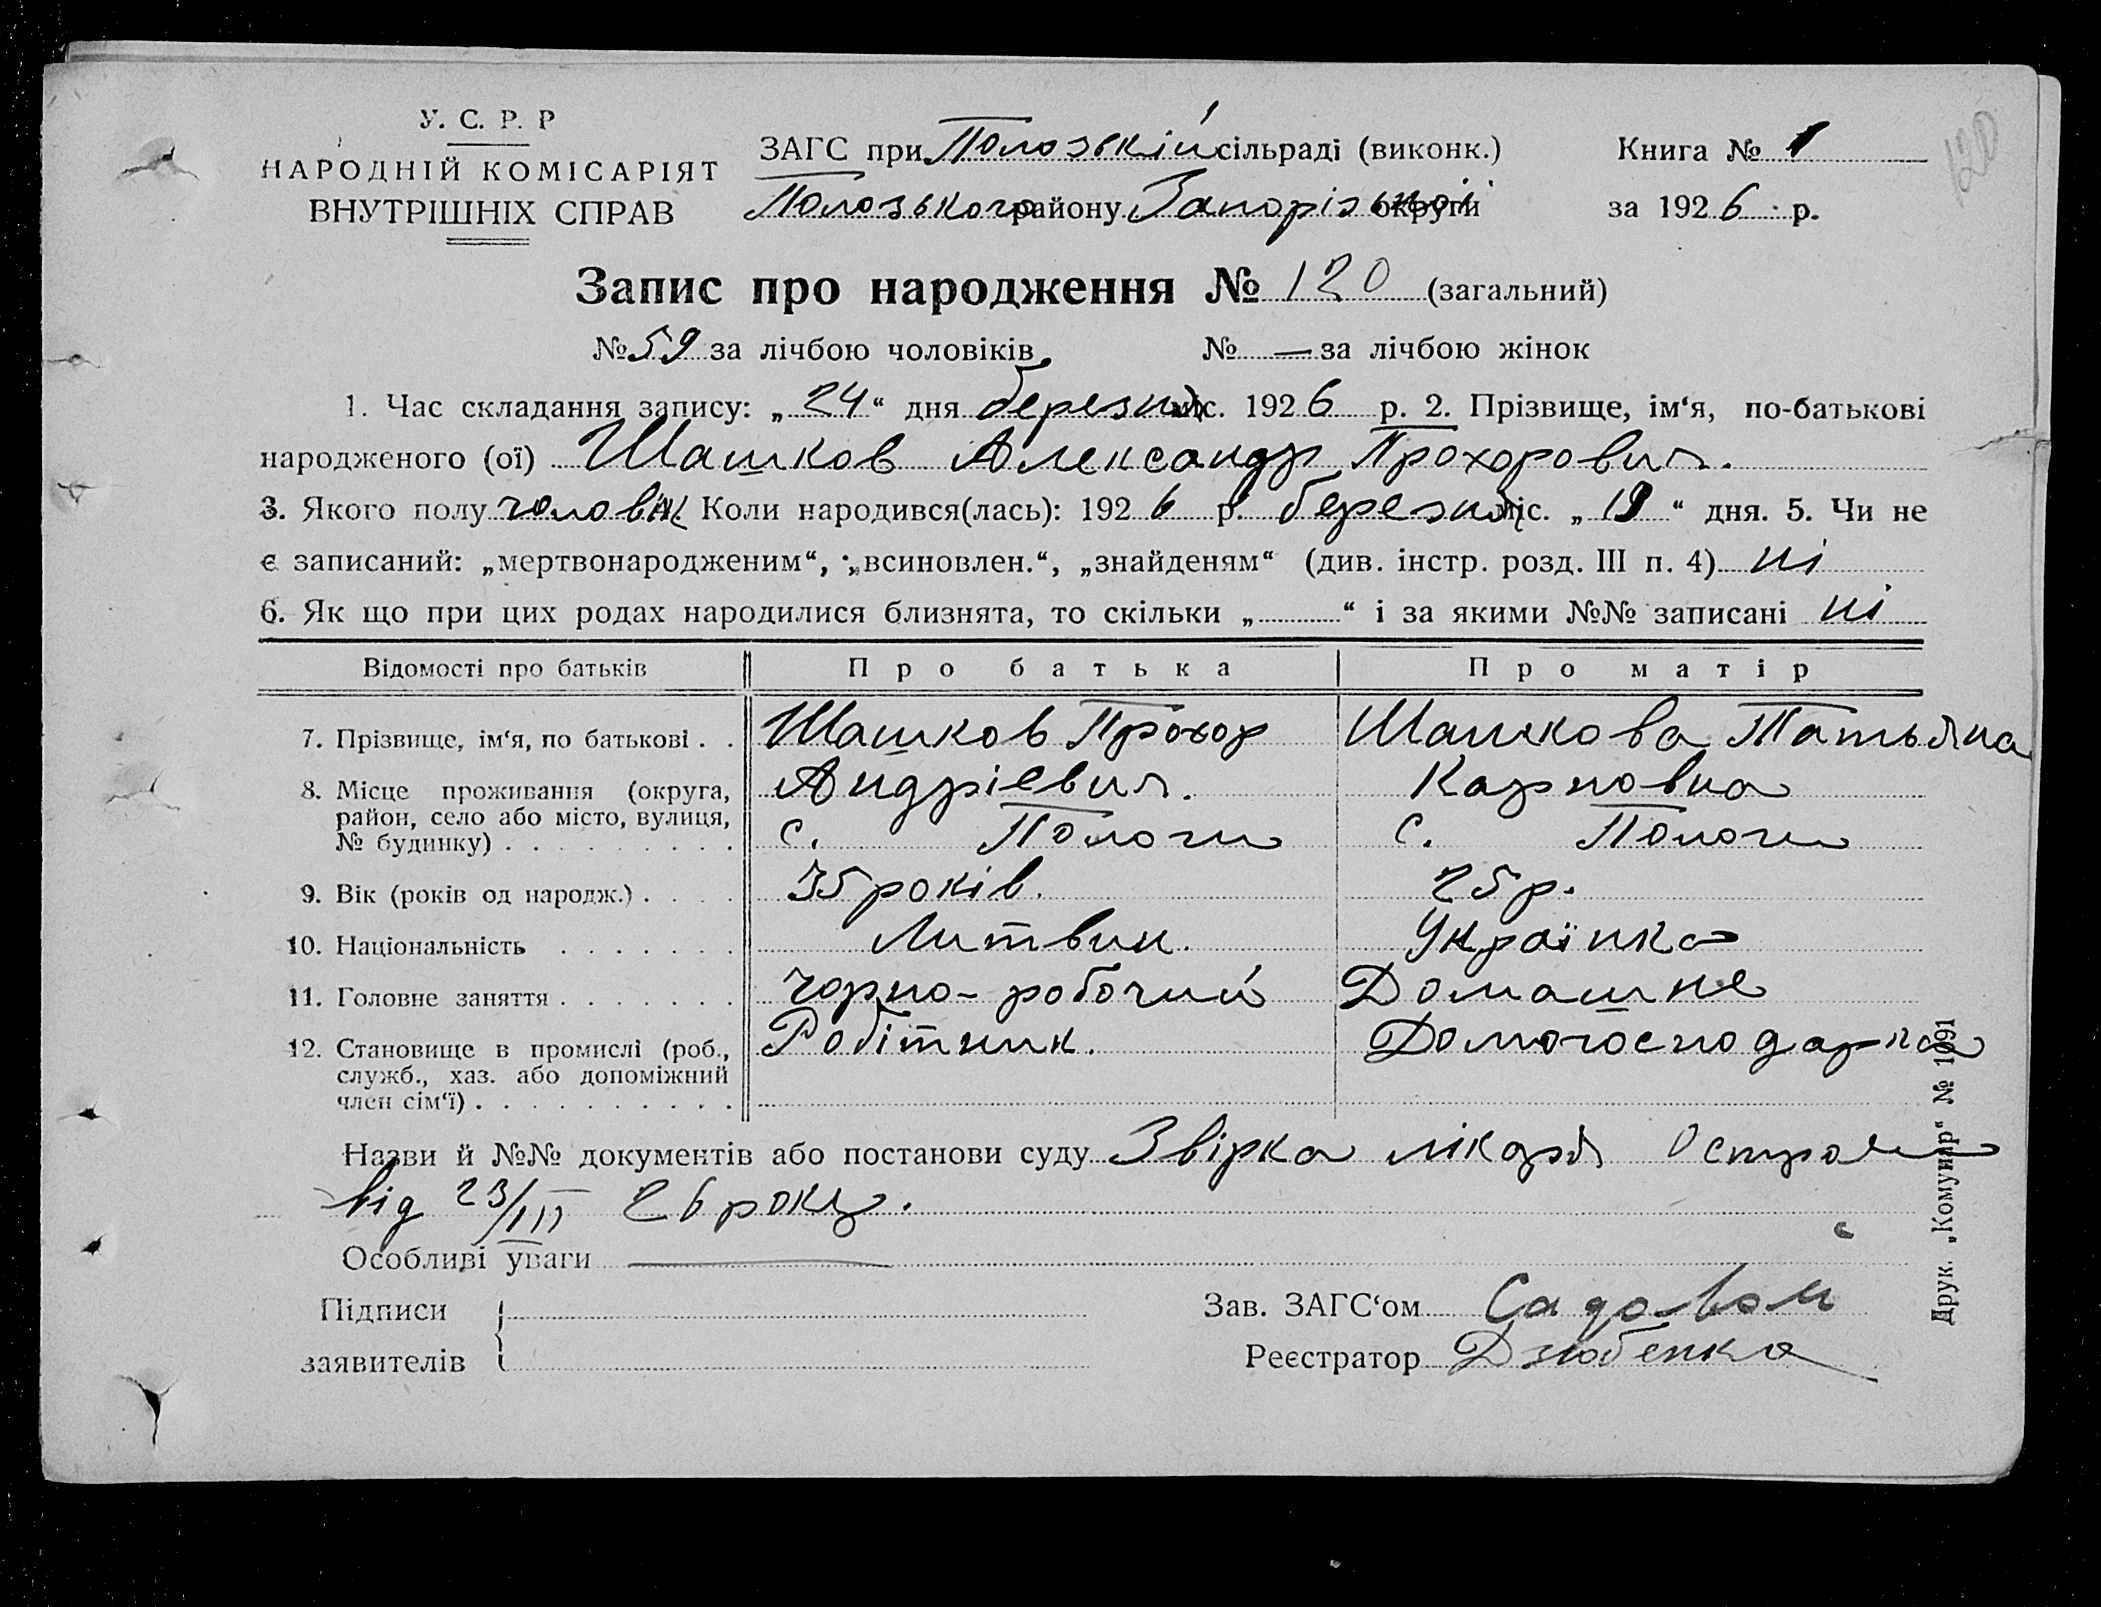 У. С. Р. Р
НАРОДНІЙ КОМІСАРІЯТ
ВНУТРІШНІХ СПРАВ
ЗАГС при Полозькій сільраді (виконк.)
Полозького району Запорізької округи
Книга № 1
за 1926 р.
120
Запис про народження № 120 (загальний)
№ 59 за лічбою чоловіків № — за лічбою жінок
1. Час складання запису: „ 24 “ дня березня міс. 1926 р. 2. Прізвище, ім‘я, по-батькові
народженого (ої) Шашков Александр Прохорович.
3. Якого полу чоловік Коли народився(лась): 1926 р. березня міс. „ 19 “ дня. 5. Чи не
є записаний: „мертвонародженим“, „всиновлен.“, „знайденям“ (див. інстр. розд. III п. 4) ні
6. Як що при цих родах народилися близнята, то скільки „ “ і за якими №№ записані ні
Відомості про батьків Про батька Про матір
7. Прізвище, ім‘я, по батькові . . Шашков Прохор Шашкова Татьяна
Андрієвич. Карповна
8. Місце проживання (округа,
район, село або місто, вулиця,
№ будинку) . . . . . . . . . с. Пологи с. Пологи
9. Вік (років од народж.) . . . . 35 років. 25 р.
10. Національність . . . . . . . Литвин. Українка
11. Головне заняття . . . . . . . Чорно-робочий Домашне
12. Становище в промислі (роб., Робітник. Домогосподарка
служб., хаз. або допоміжний
член сім‘ї) . . . . . . . . . .
Назви й №№ документів або постанови суду Звірка лікаря
від 23/III 26 року.
Особливі уваги
Підписи
заявителів
Зав. ЗАГС‘ом Садовой
Реєстратор Дзюбенко
Друк. „Комунар“ № 1091